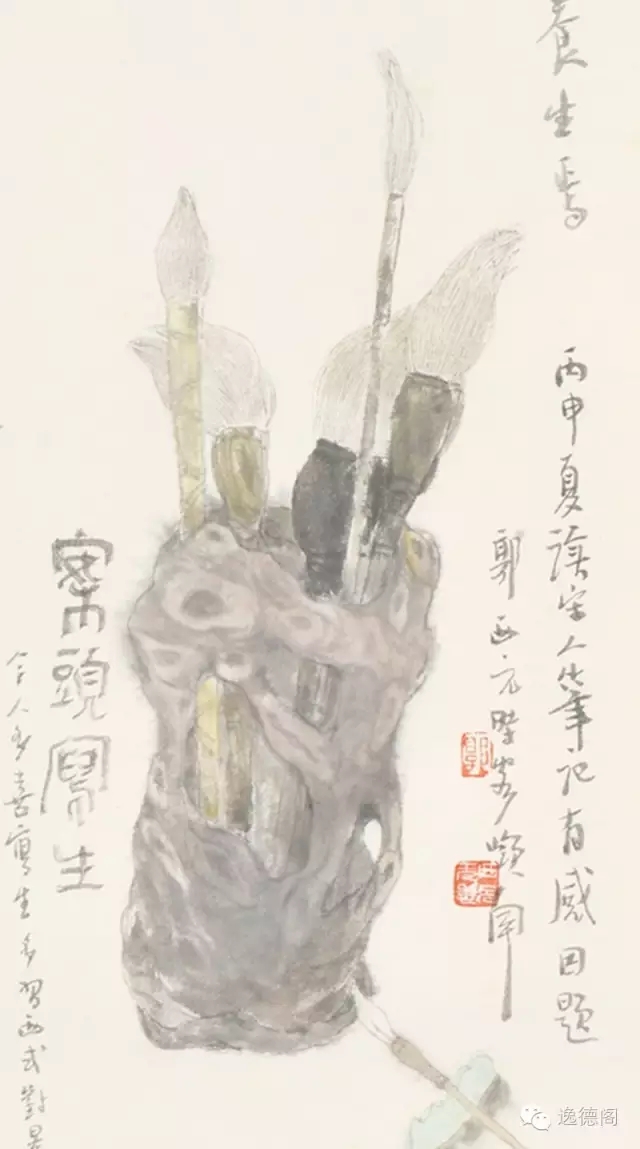 養生焉
丙申夏读宋人筆记有感因題
郭西元時客嶺南
郭
案頭寫生
今人多喜寫生多習西式對景
逸德阁